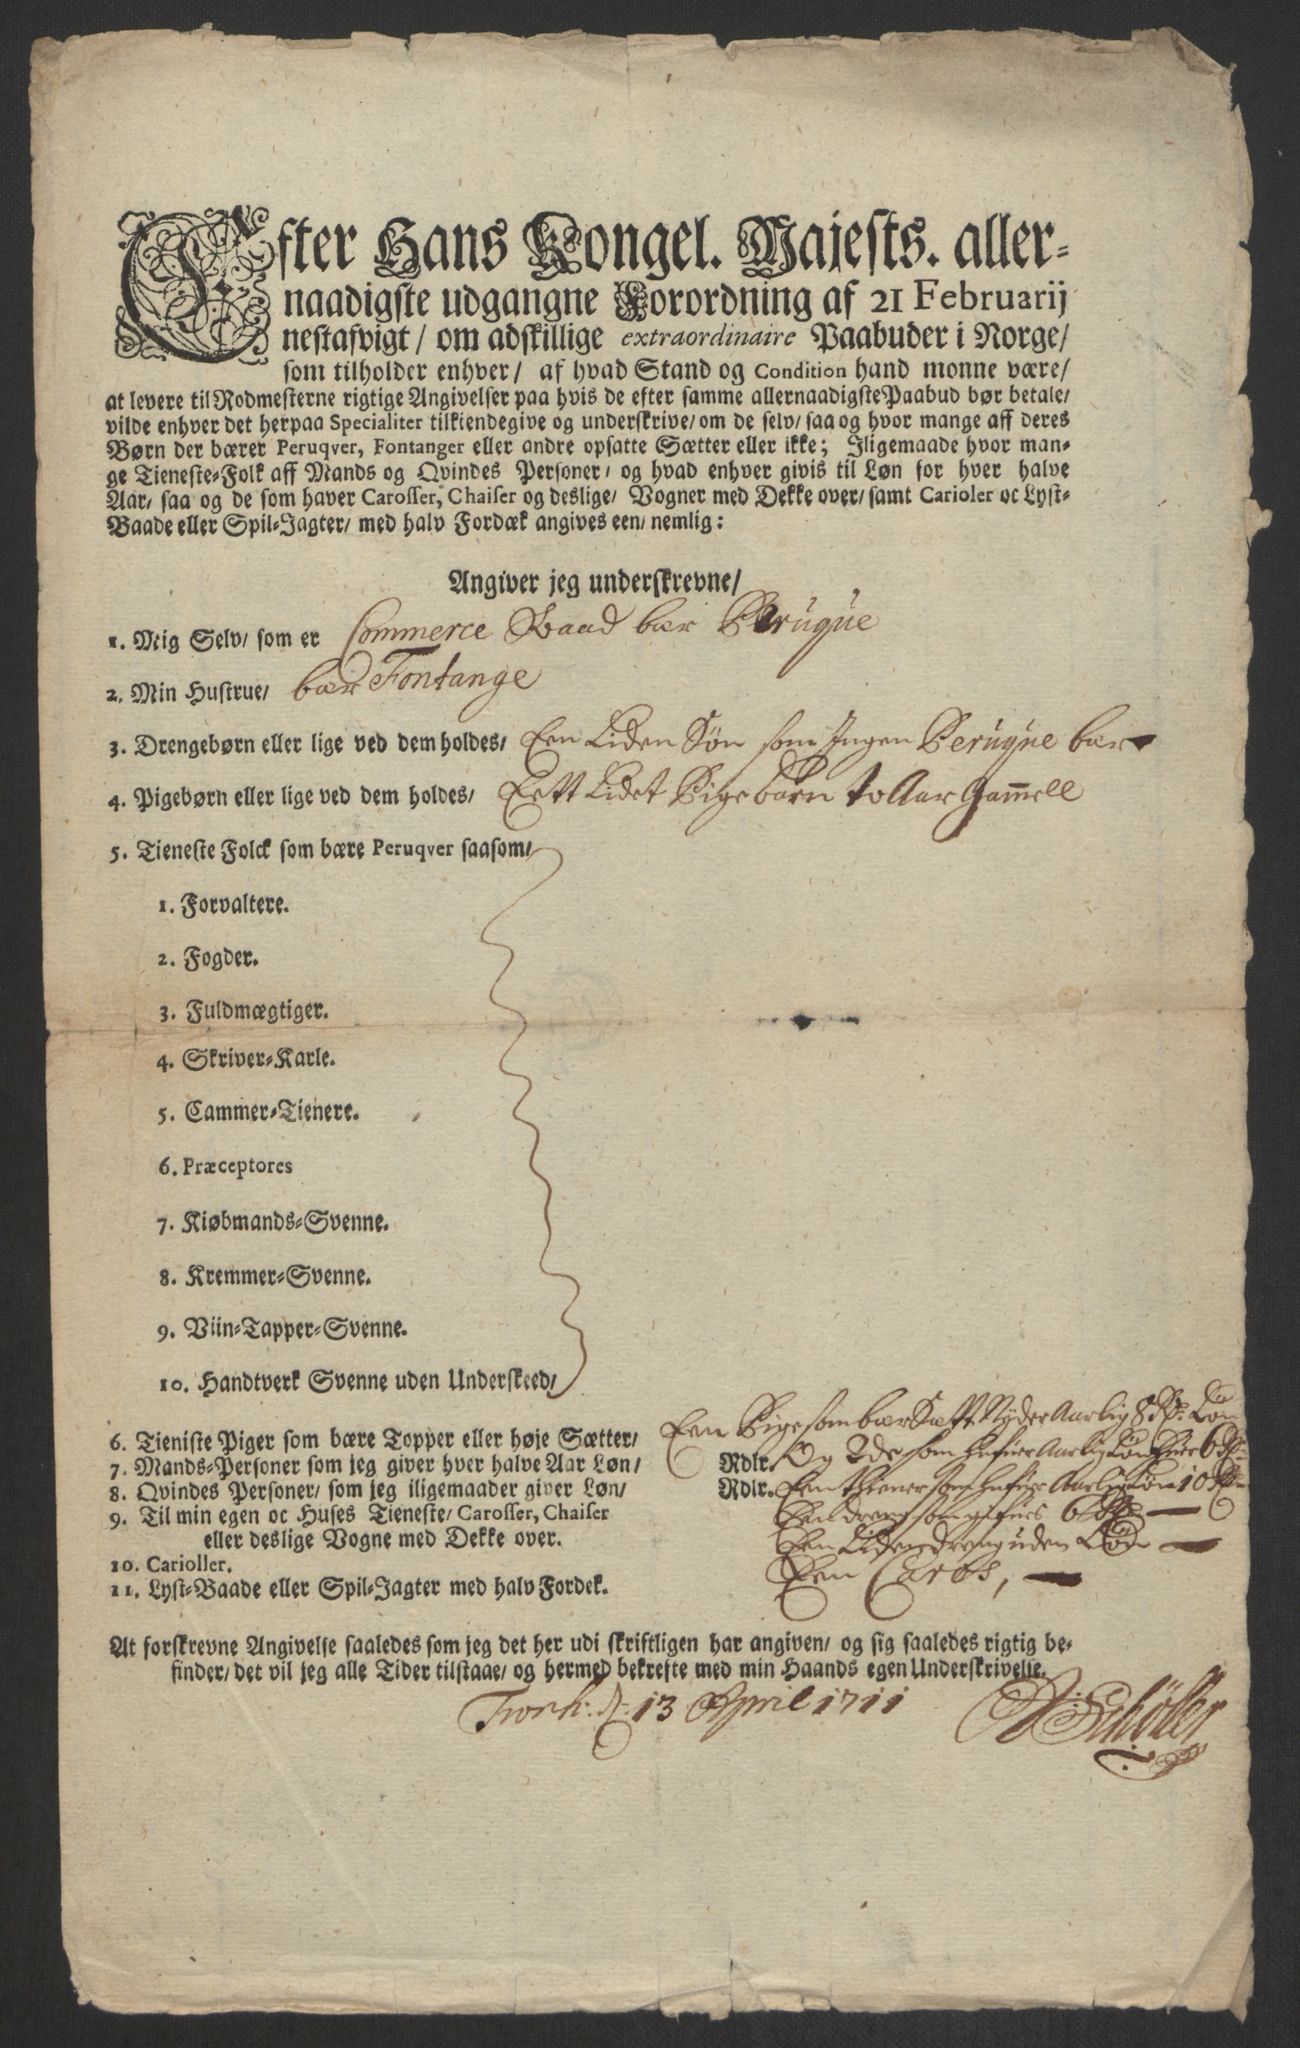 Efter Hans Kongel. Majests. aller-
naadigste udgangne Forordning af 21 Februarij
nestafvigt/ om adskillige extraordinaire Paabuder i Norge/
som tilholder enhver/ af hvad Stand og Condition hand monne være/
at levere til Rodmesterne rigtige Angivelser paa hvis de efter samme allernaadigste Paabud bør betale/
vilde enhver det herpaa Specialiter tilkiendegive og underskrive/ om de selv/ saa og hvor mange aff deres
Børn der bærer Peruqver, Fontanger eller andre opsatte Sætter eller ikke; Iligemaade hvor man-
ge Tieneste-Folk aff Mands og Qvindes Personer/ og hvad enhver givis til Løn for hver halve
Aar/ saa og de som haver Carosser, Chaiser og deslige/ Vogner med Dekke over/ samt Carioler oc Lyst-
Baade eller Spil-Jagter/ med halv Fordæk angives een/ nemlig:
Angiver jeg underskrevne/
1. Mig Selv/ som er Commerce Raad bær Peruque
2. Min Hustrue/ bær Fontange
3. Drengebørn eller lige ved dem holdes/ Een Liden Søn som Ingen Peruque bær
4. Pigebørn eller lige ved dem holdes/ Eett Lidet Pige barn to Aar Gammell
5. Tieneste Folck som bære Peruqver saasom/
1. Forvaltere.
2. Fogder.
3. Fuldmægtiger.
4. Skriver-Karle.
5. Cammer-Tienere.
6. Præceptores
7. Kiøbmands-Svenne.
8. Kremmer-Svenne.
9. Viin-Tapper-Svenne.
10. Handtverk Svenne uden Underskeed/
6. Tieniste Piger som bære Topper eller høje Sætter/ Een Pige som bær Sætt Nyder Aarlig 8 Rd. Løn
7. Mands-Personer som jeg giver hver halve Aar Løn/ Rdlr. Og 2 de som Aarlig Løn 6 Rd
8. Qvindes Personer/ som jeg iligemaader giver Løn/ Rdlr. Een thiener som Aarlig Løn 10 Rd
9. Til min egen oc Huses Tieneste/ Carosser, Chaiser Een dreng som 6 Rd
eller deslige Vogne med Dekke over. Een Liden dreng uden Løn
10. Carioller. Een Caros,
11. Lyst-Baade eller Spil-Jagter med halv Fordek.
At forskrevne Angivelse saaledes som jeg det her udi skriftligen har angiven/ og sig saaledes rigtig be-
finder/ det vil jeg alle Tider tilstaae/ og hermed bekrefte med min Haands egen Underskrivelse.
Tronh: d: 13 April 1711 Schöller